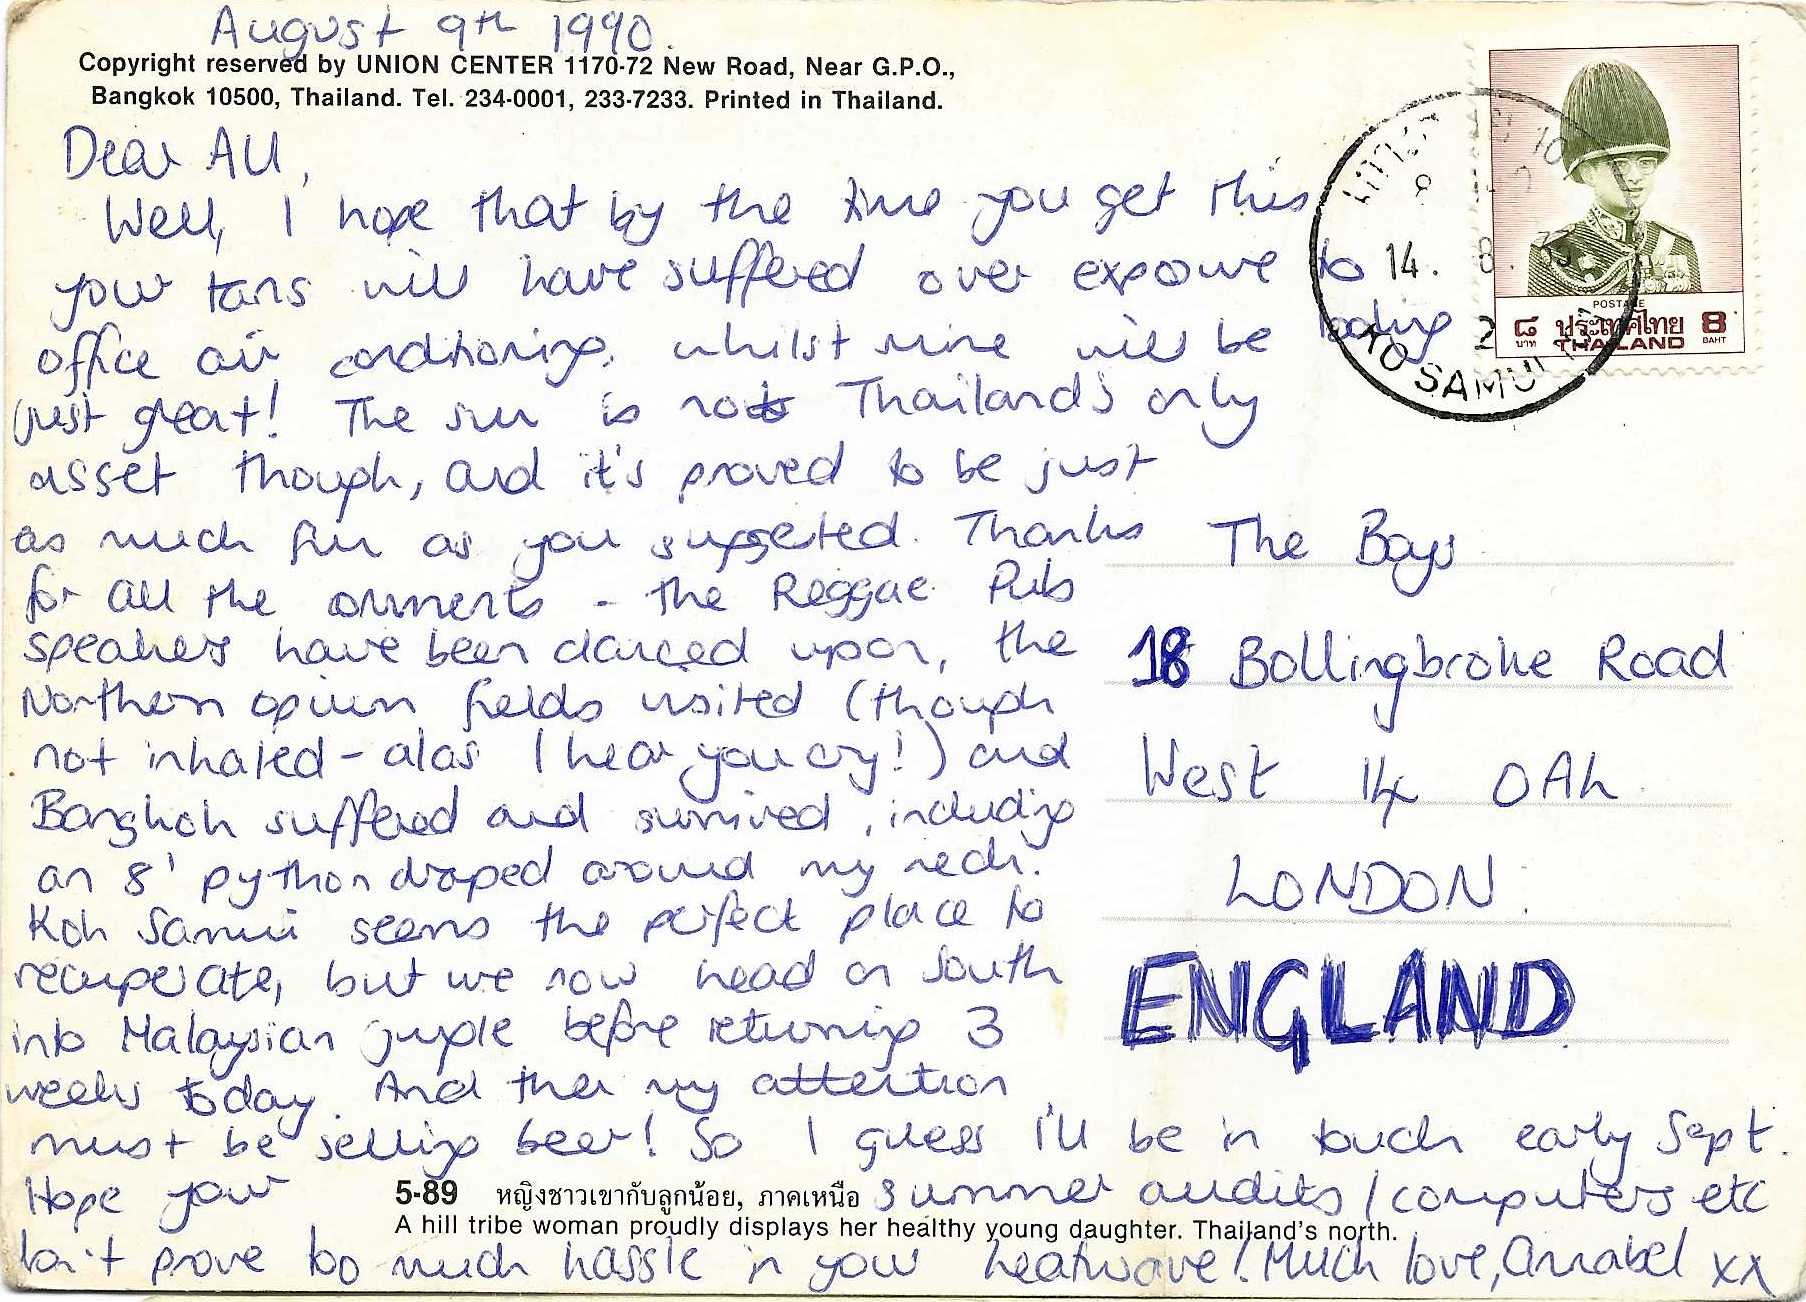 August 9th 1990.
Copyright reserved by UNION CENTER 1170-72 New Road, Near G.P.O.,
Bangkok 10500, Thailand. Tel. 234-0001, 233-7233. Printed in Thailand.
Dear All,
Well, I hope that by the time you get this
your tans will have suffered over exposure to
office air conditioning, whilst mine will be looking
just great! The sun is not Thailand's only
asset though, and it's proved to be just
as much fun as you suggested. Thanks
for all the comments - the Reggae Pub
speakers have been danced upon, the
Northern opium fields visited (though
not inhaled - alas I hear you cry!) and
Bangkok suffered and survived, including
an 8' python draped around my neck.
Koh Samui seems the perfect place to
recuperate, but we now head on South
into Malaysian jungle before returning 3
weeks today. And then my attention
must be selling beer! So I guess I'll be in touch early Sept.
Hope your summer audits / computers etc
don't prove too much hassle in your heatwave! Much love, Annabel xx
5-89 หญิงชาวเขากับลูกน้อย, ภาคเหนือ
A hill tribe woman proudly displays her healthy young daughter. Thailand's north.
The Boys
18 Bollingbroke Road
West 14 0AH
LONDON.
ENGLAND
14. 8. 33
2
KO SAMUI
POSTAGE
๘ ประเทศไทย 8
บาท THAILAND BAHT